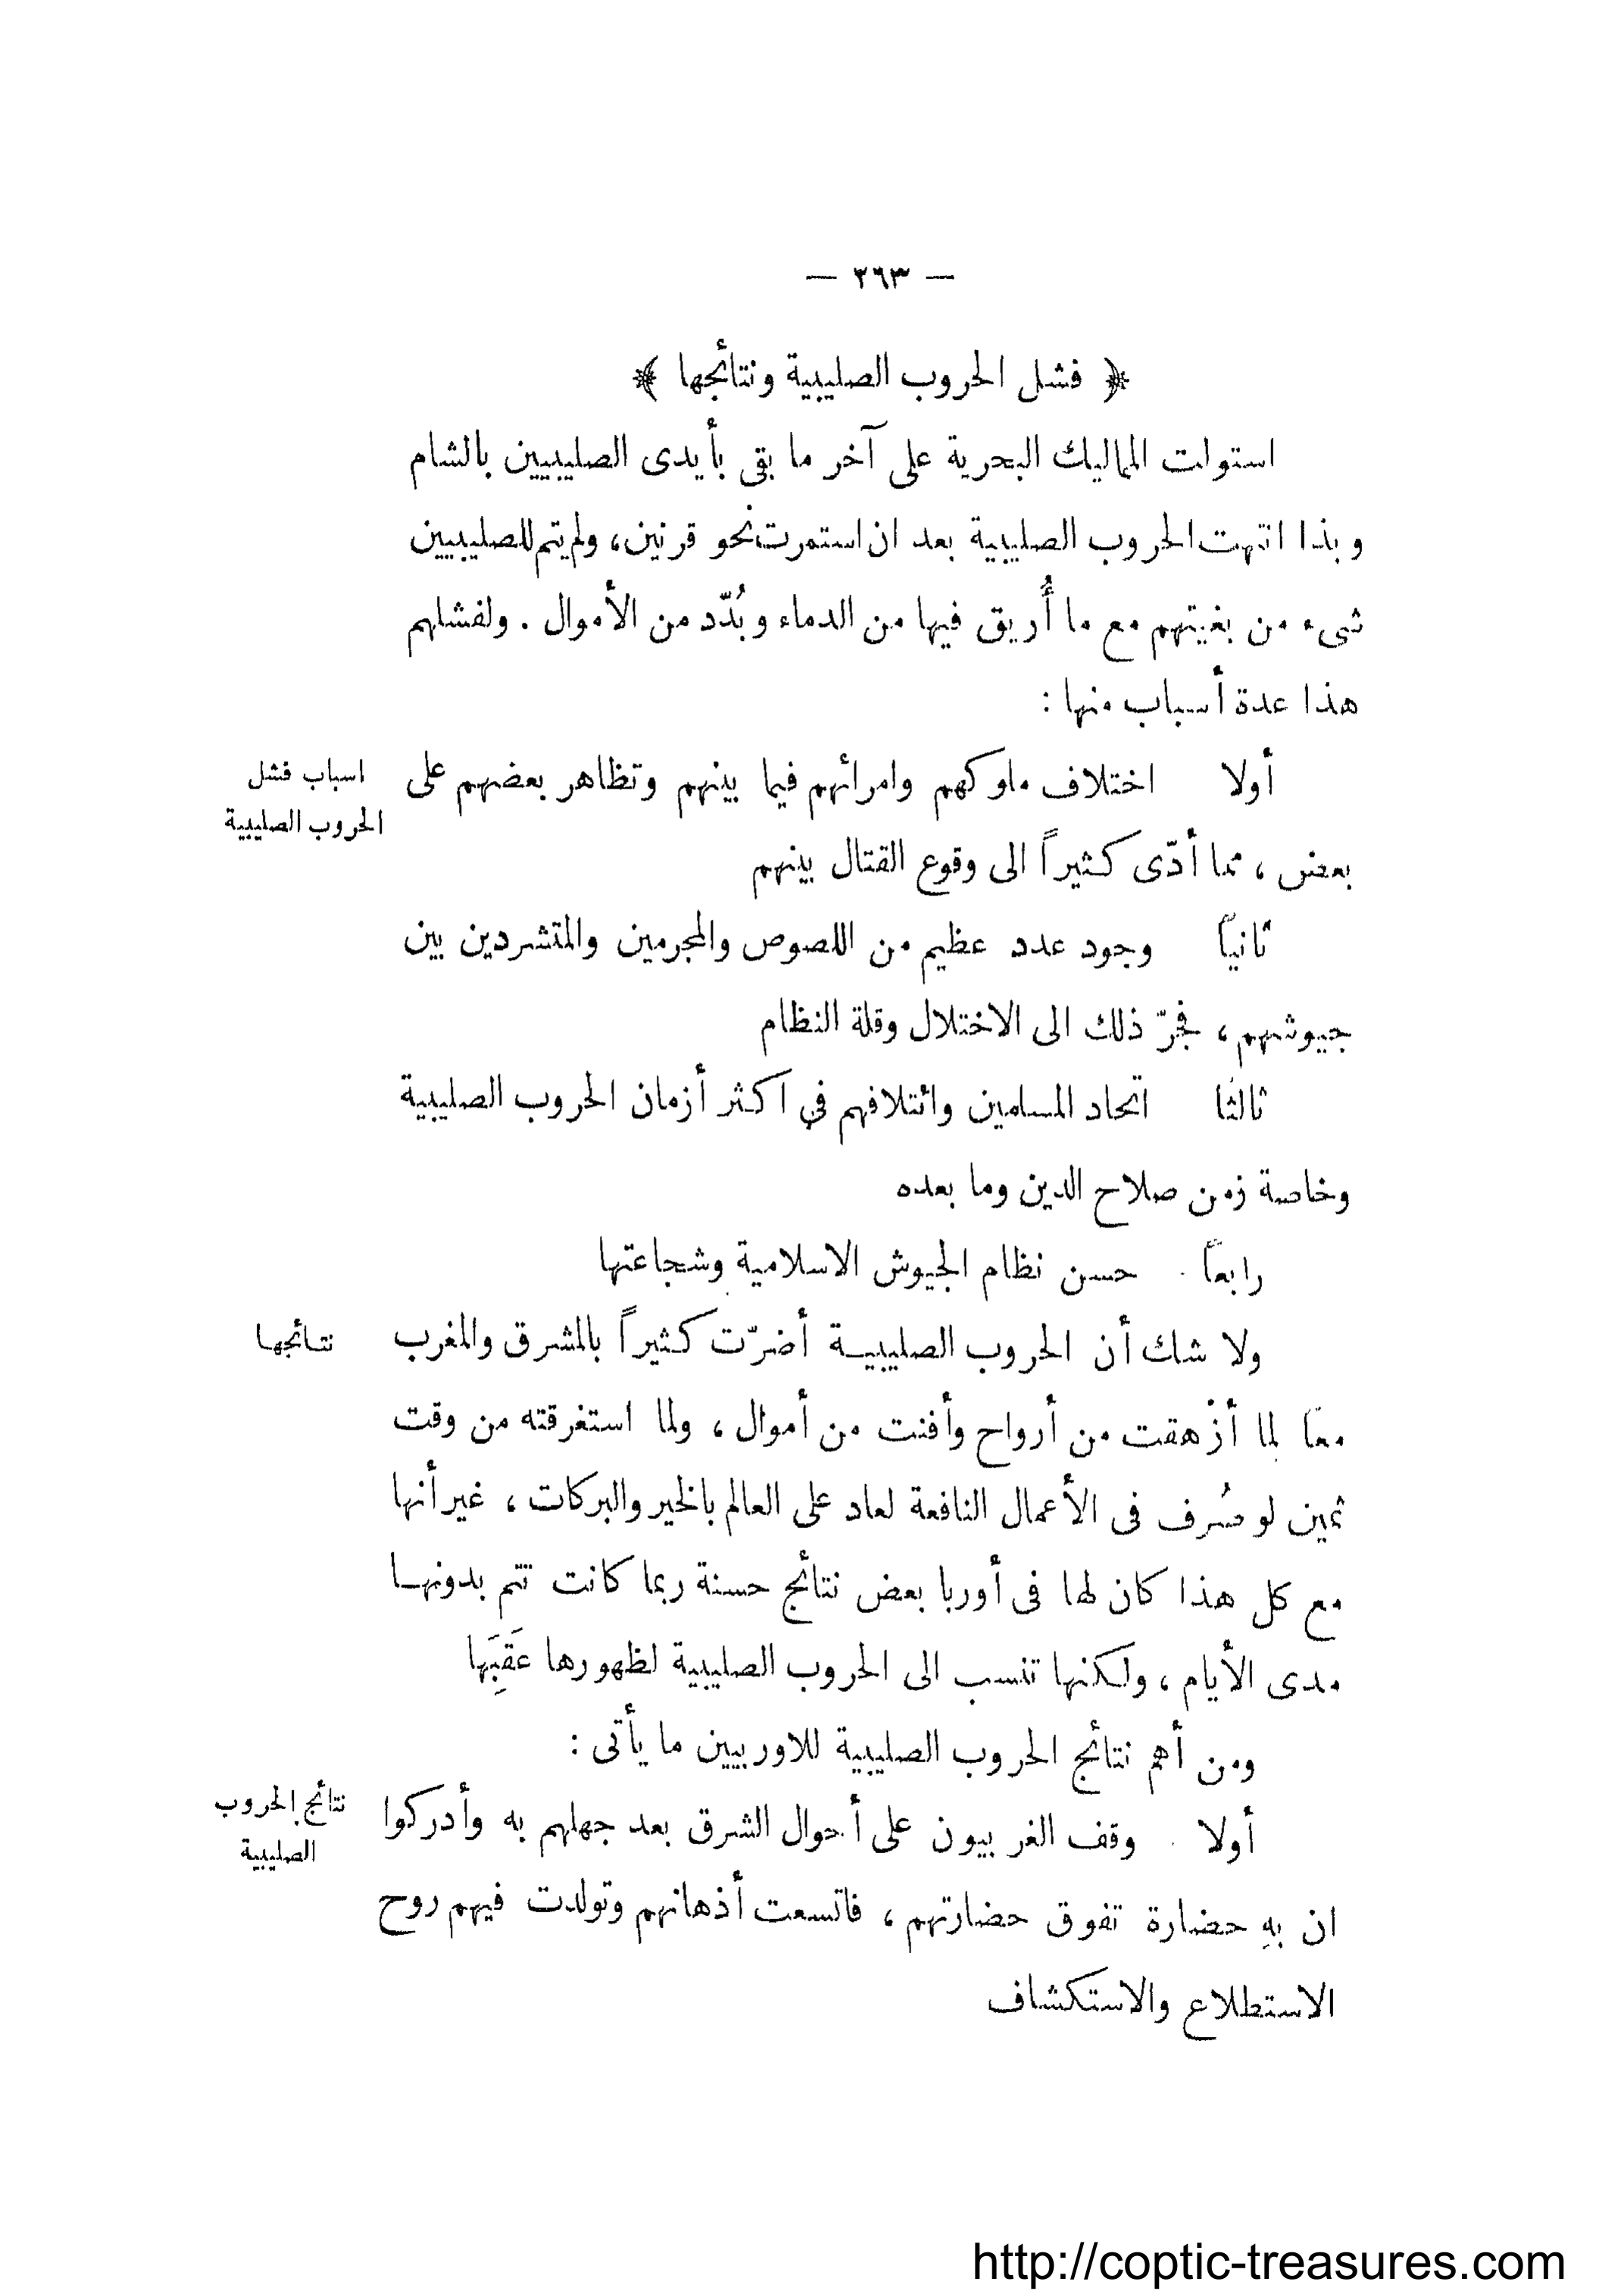 — ٢٦٣ —
﴿ فشل الحروب الصليبية ونتائجها ﴾
استولت المماليك البحرية على آخر ما بقى بأيدى الصليبيين بالشام
وبذا انتهت الحروب الصليبية بعد ان استمرت نحو قرنين، ولم يتم للصليبيين
شىء من بغيتهم مع ما أُريق فيها من الدماء وبُدّد من الأموال . ولفشلهم
هذا عدة أسباب منها :
أولا اختلاف ملوكهم وامرائهم فيما بينهم وتظاهر بعضهم على
اسباب فشل
الحروب الصليبية
بعض ، مما أدّى كثيراً الى وقوع القتال بينهم
ثانياً وجود عدد عظيم من اللصوص والمجرمين والمتشردين بين
جيوشهم ، فجرّ ذلك الى الاختلال وقلة النظام
ثالثا اتحاد المسلمين وائتلافهم في اكثر أزمان الحروب الصليبية
وخاصة زمن صلاح الدين وما بعده
رابعاً حسن نظام الجيوش الاسلامية وشجاعتها
ولا شك أن الحروب الصليبية أضرّت كثيراً بالمشرق والمغرب
نتائجها
معا لما أزهقت من أرواح وأفنت من أموال ، ولما استغرقته من وقت
ثمين لو صُرف فى الأعمال النافعة لعاد على العالم بالخير والبركات ، غير أنها
مع كل هذا كان لها فى أوربا بعض نتائج حسنة ربما كانت تتم بدونها
مدى الأيام ، ولكنها تنسب الى الحروب الصليبية لظهورها عَقِبَها
ومن أهم نتائج الحروب الصليبية للاوربيين ما يأتى :
أولا وقف الغربيون على أحوال الشرق بعد جهلهم به وأدركوا
نتائج الحروب
الصليبية
ان بهِ حضارة تفوق حضارتهم ، فاتسعت أذهانهم وتولدت فيهم روح
الاستطلاع والاستكشاف
http://coptic-treasures.com